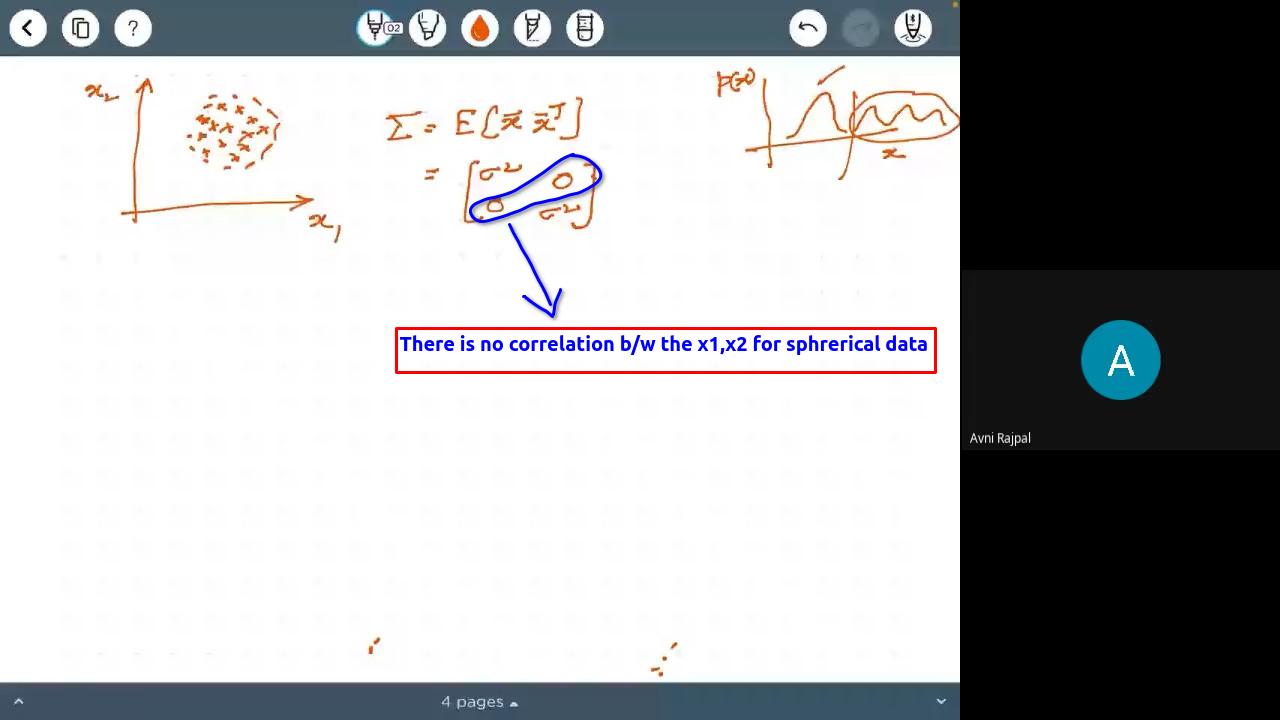 ?
02
x₂
x₁
Σ = E[x̄ x̄ᵀ]
= [σ² 0
0 σ²]
P(x)
x
There is no correlation b/w the x1,x2 for sphrerical data
A
Avni Rajpal
4 pages